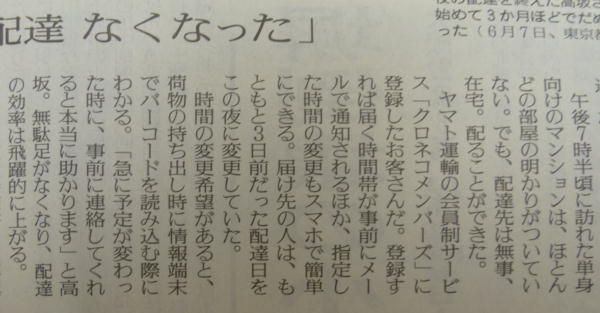 の配達を終えた高坂さ
始めて3か月ほどでだ
った(6月7日、東京都
配達 なくなった」
午後7時半頃に訪れた単身
向けのマンションは、ほとん
どの部屋の明かりがついてい
ない。でも、配達先は無事、
在宅。配ることができた。
ヤマト運輸の会員制サービ
ス「クロネコメンバーズ」に
登録したお客さんだ。登録す
れば届く時間帯が事前にメー
ルで通知されるほか、指定し
た時間の変更もスマホで簡単
にできる。届け先の人は、も
ともと3日前だった配達日を
この夜に変更していた。
時間の変更希望があると、
荷物の持ち出し時に情報端末
でバーコードを読み込む際に
わかる。「急に予定が変わっ
た時に、事前に連絡してくれ
ると本当に助かります」と高
坂。無駄足がなくなり、配達
の効率は飛躍的に上がる。